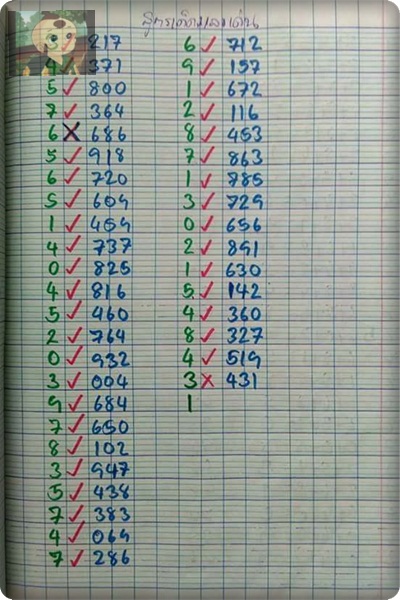 สูตรเด็ดเลขเด่น
3 ✓ 217
4 ✓ 371
5 ✓ 800
7 ✓ 364
6 ✗ 686
5 ✓ 918
6 ✓ 720
5 ✓ 609
1 ✓ 459
4 ✓ 737
0 ✓ 825
4 ✓ 816
5 ✓ 460
2 ✓ 764
0 ✓ 932
3 ✓ 004
9 ✓ 684
7 ✓ 650
8 ✓ 102
3 ✓ 947
5 ✓ 438
7 ✓ 383
4 ✓ 069
7 ✓ 286
6 ✓ 712
9 ✓ 157
1 ✓ 672
2 ✓ 116
8 ✓ 453
7 ✓ 863
1 ✓ 785
3 ✓ 729
0 ✓ 656
2 ✓ 891
1 ✓ 630
5 ✓ 142
4 ✓ 360
8 ✓ 327
4 ✓ 519
3 ✗ 431
1